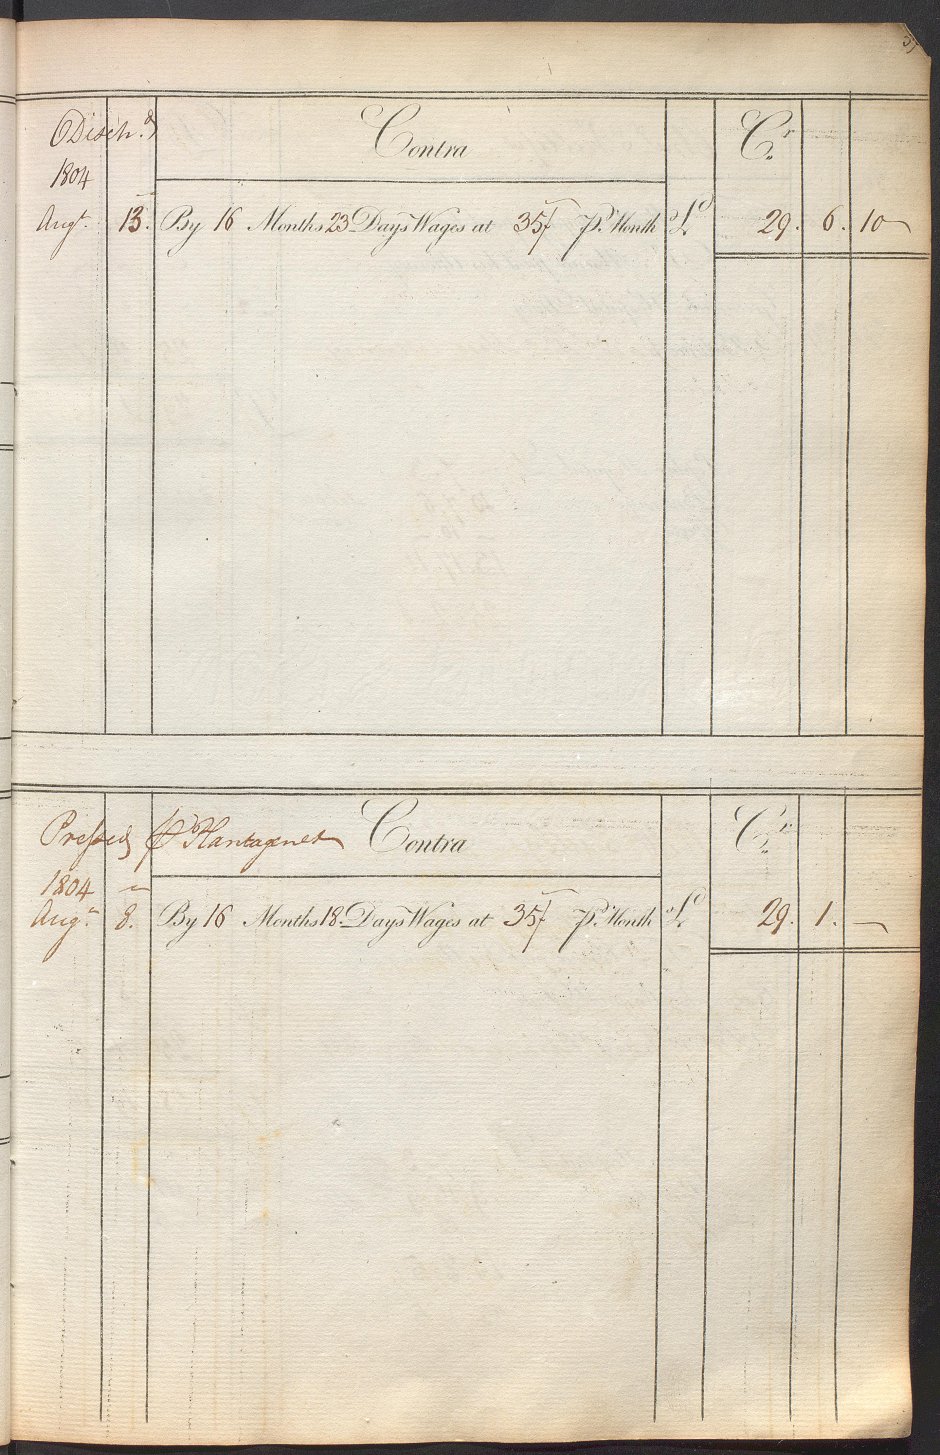 Disch.d
Contra
Cr.
1804
Augt. 13. By 16 Months 23 Days Wages at 35/ Pr. Month £ 29. 6. 10
Pressed pr Plantagenet Contra
Cr.
1804
Augt. 8. By 16 Months 18 Days Wages at 35/ Pr. Month £ 29. 1. —